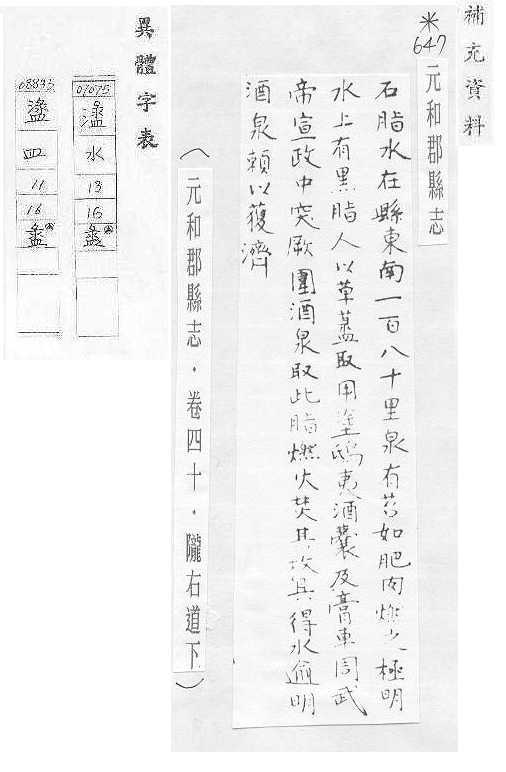 補充資料
※
647
元和郡縣志
石脂水在縣東南一百八十里泉有苔如肥肉燃之極明
水上有黑脂人以草盝取用塗鴟夷酒囊及膏車周武
帝宣政中突厥圍酒泉取此脂燃火焚其攻具得水逾明
酒泉賴以獲濟
(元和郡縣志．卷四十．隴右道下)
異體字表
07075
水
13
16
08893
盝
皿
11
16